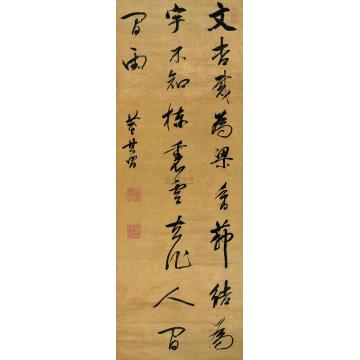 文杏裁為梁香茆結為
宇不知棟裏雲去作人間
間雨
董其昌